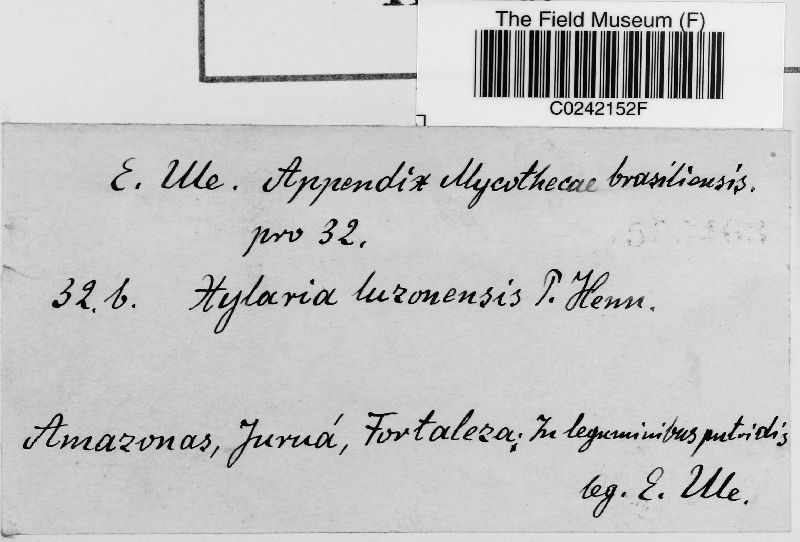 The Field Museum (F)
C0242152F
E. Ule. Appendix Mycothecae brasiliensis.
pro 32.
32.b. Xylaria luzonensis P. Henn.
Amazonas, Juruá, Fortaleza; In leguminibus putridis
leg. E. Ule.